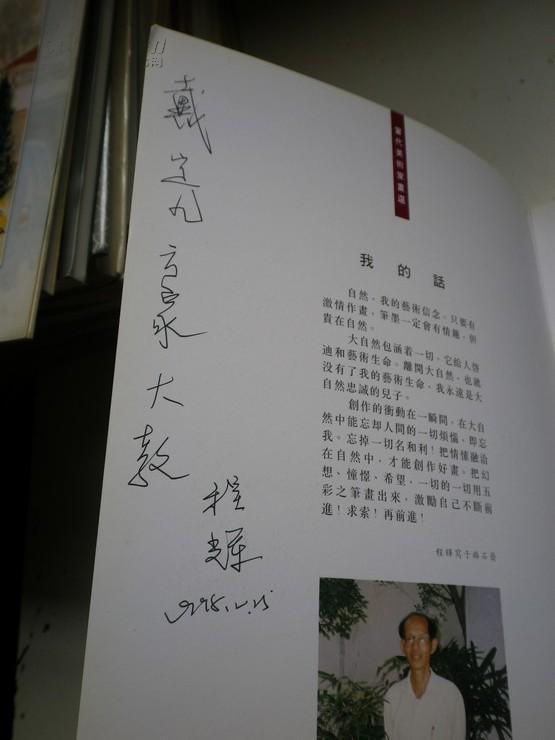 戴定九方家大教
程輝
當代美術家畫選
我的話
自然，我的藝術信念。只要有
激情作畫，筆墨一定會有情趣，但
貴在自然。
大自然包涵着一切，它給人啓
迪和藝術生命。離開大自然，也就
没有了我的藝術生命，我永遠是大
自然忠誠的兒子。
創作的衝動在一瞬間，在大自
然中能忘却人間的一切煩惱，即忘
我。忘掉一切名和利！把情愫融洽
在自然中，才能創作好畫。把幻
想、憧憬、希望，一切的一切用五
彩之筆畫出來，激勵自己不斷前
進！求索！再前進！
程輝寫于梅石齋